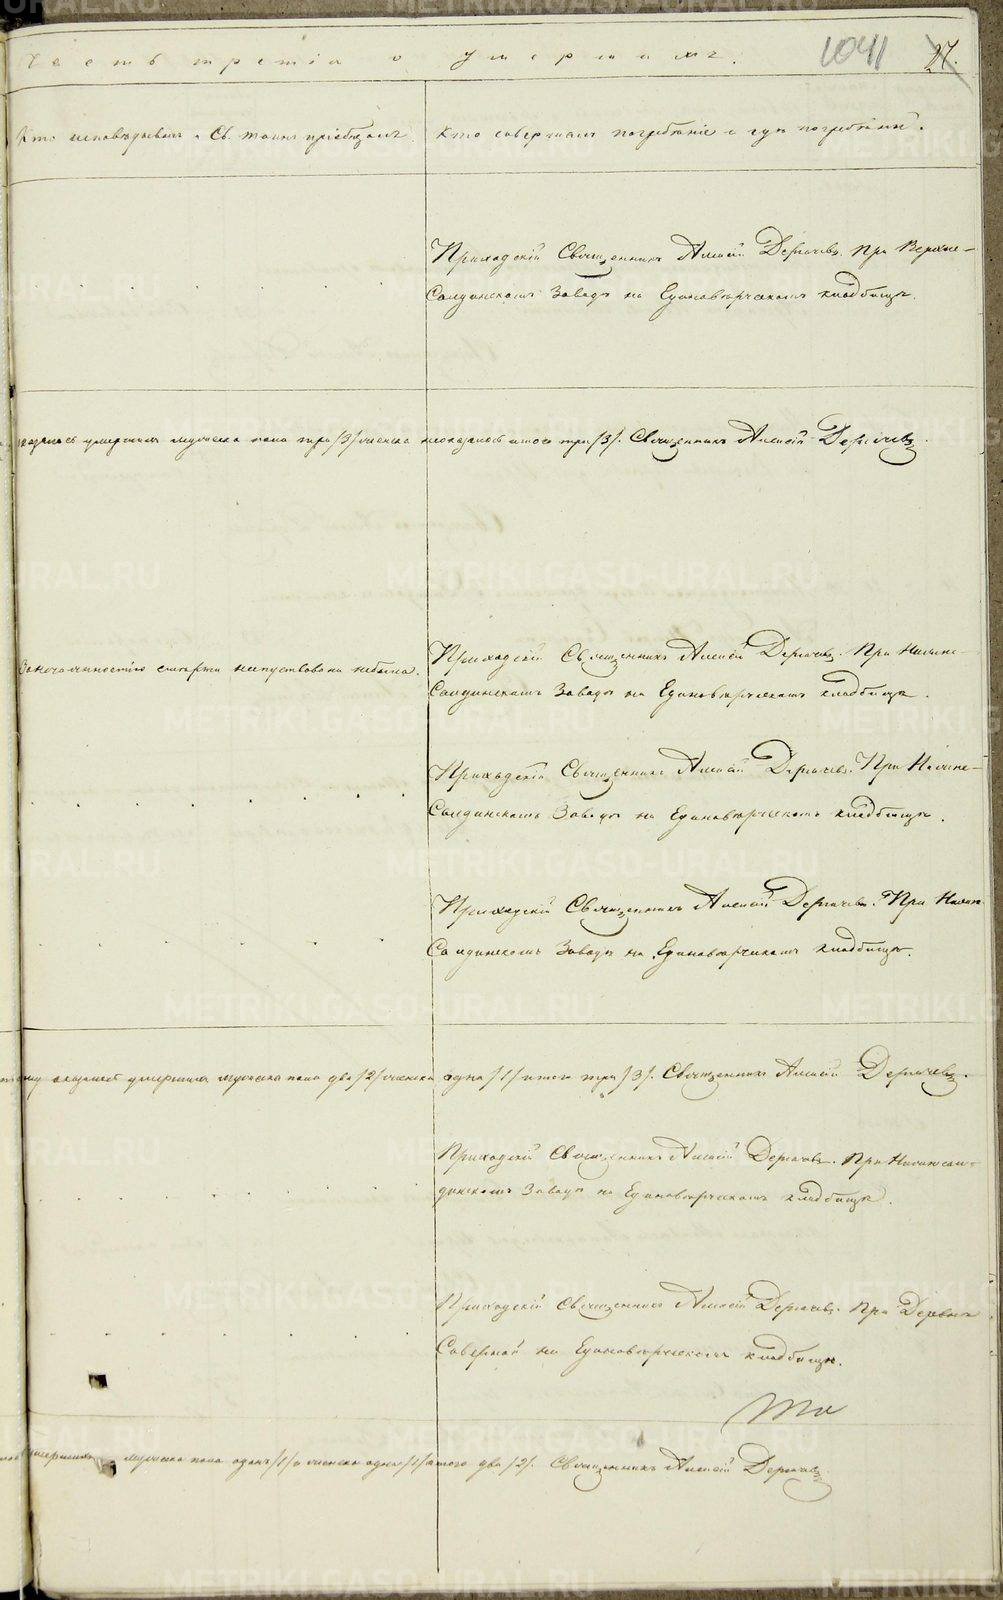 Часть третія о умершихъ.
1041
27.
Кто исповѣдывалъ и Св. таинъ пріобщалъ
Кто совершалъ погребеніе и гдѣ погребены.
Приходскій Священникъ Алексій Дерпачевъ. При Верхне-
Салдинскомъ Заводѣ на Единовѣрческомъ кладбищѣ.
умершихъ мужеска пола три /3/ женска неоказалось итого три /3/. Священникъ Алексій
За нечаянностію смерти напутствована небыла.
Приходскій Священникъ Алексій При Нижне-
Салдинскомъ Заводѣ на Единовѣрческомъ кладбищѣ.
Приходскій Священникъ Алексій При Нижне-
Салдинскомъ Заводѣ на Единовѣрческомъ кладбищѣ.
Приходскій Священникъ Алексій При Нижне
Салдинскомъ Заводѣ на Единовѣрческомъ кладбищѣ.
умершихъ мужеска пола два /2/ женска одна /1/ итого три /3/. Священникъ Алексій
Приходскій Священникъ Алексій При Нижнесал-
динскомъ Заводѣ на Единовѣрческомъ кладбищѣ.
Приходскій Священникъ Алексій При Деревнѣ
на Единовѣрческомъ кладбищѣ.
умершихъ мужеска пола одинъ /1/ и женска одна /1/ итого два /2/. Священникъ Алексій
METRIKI.GASO-URAL.RU